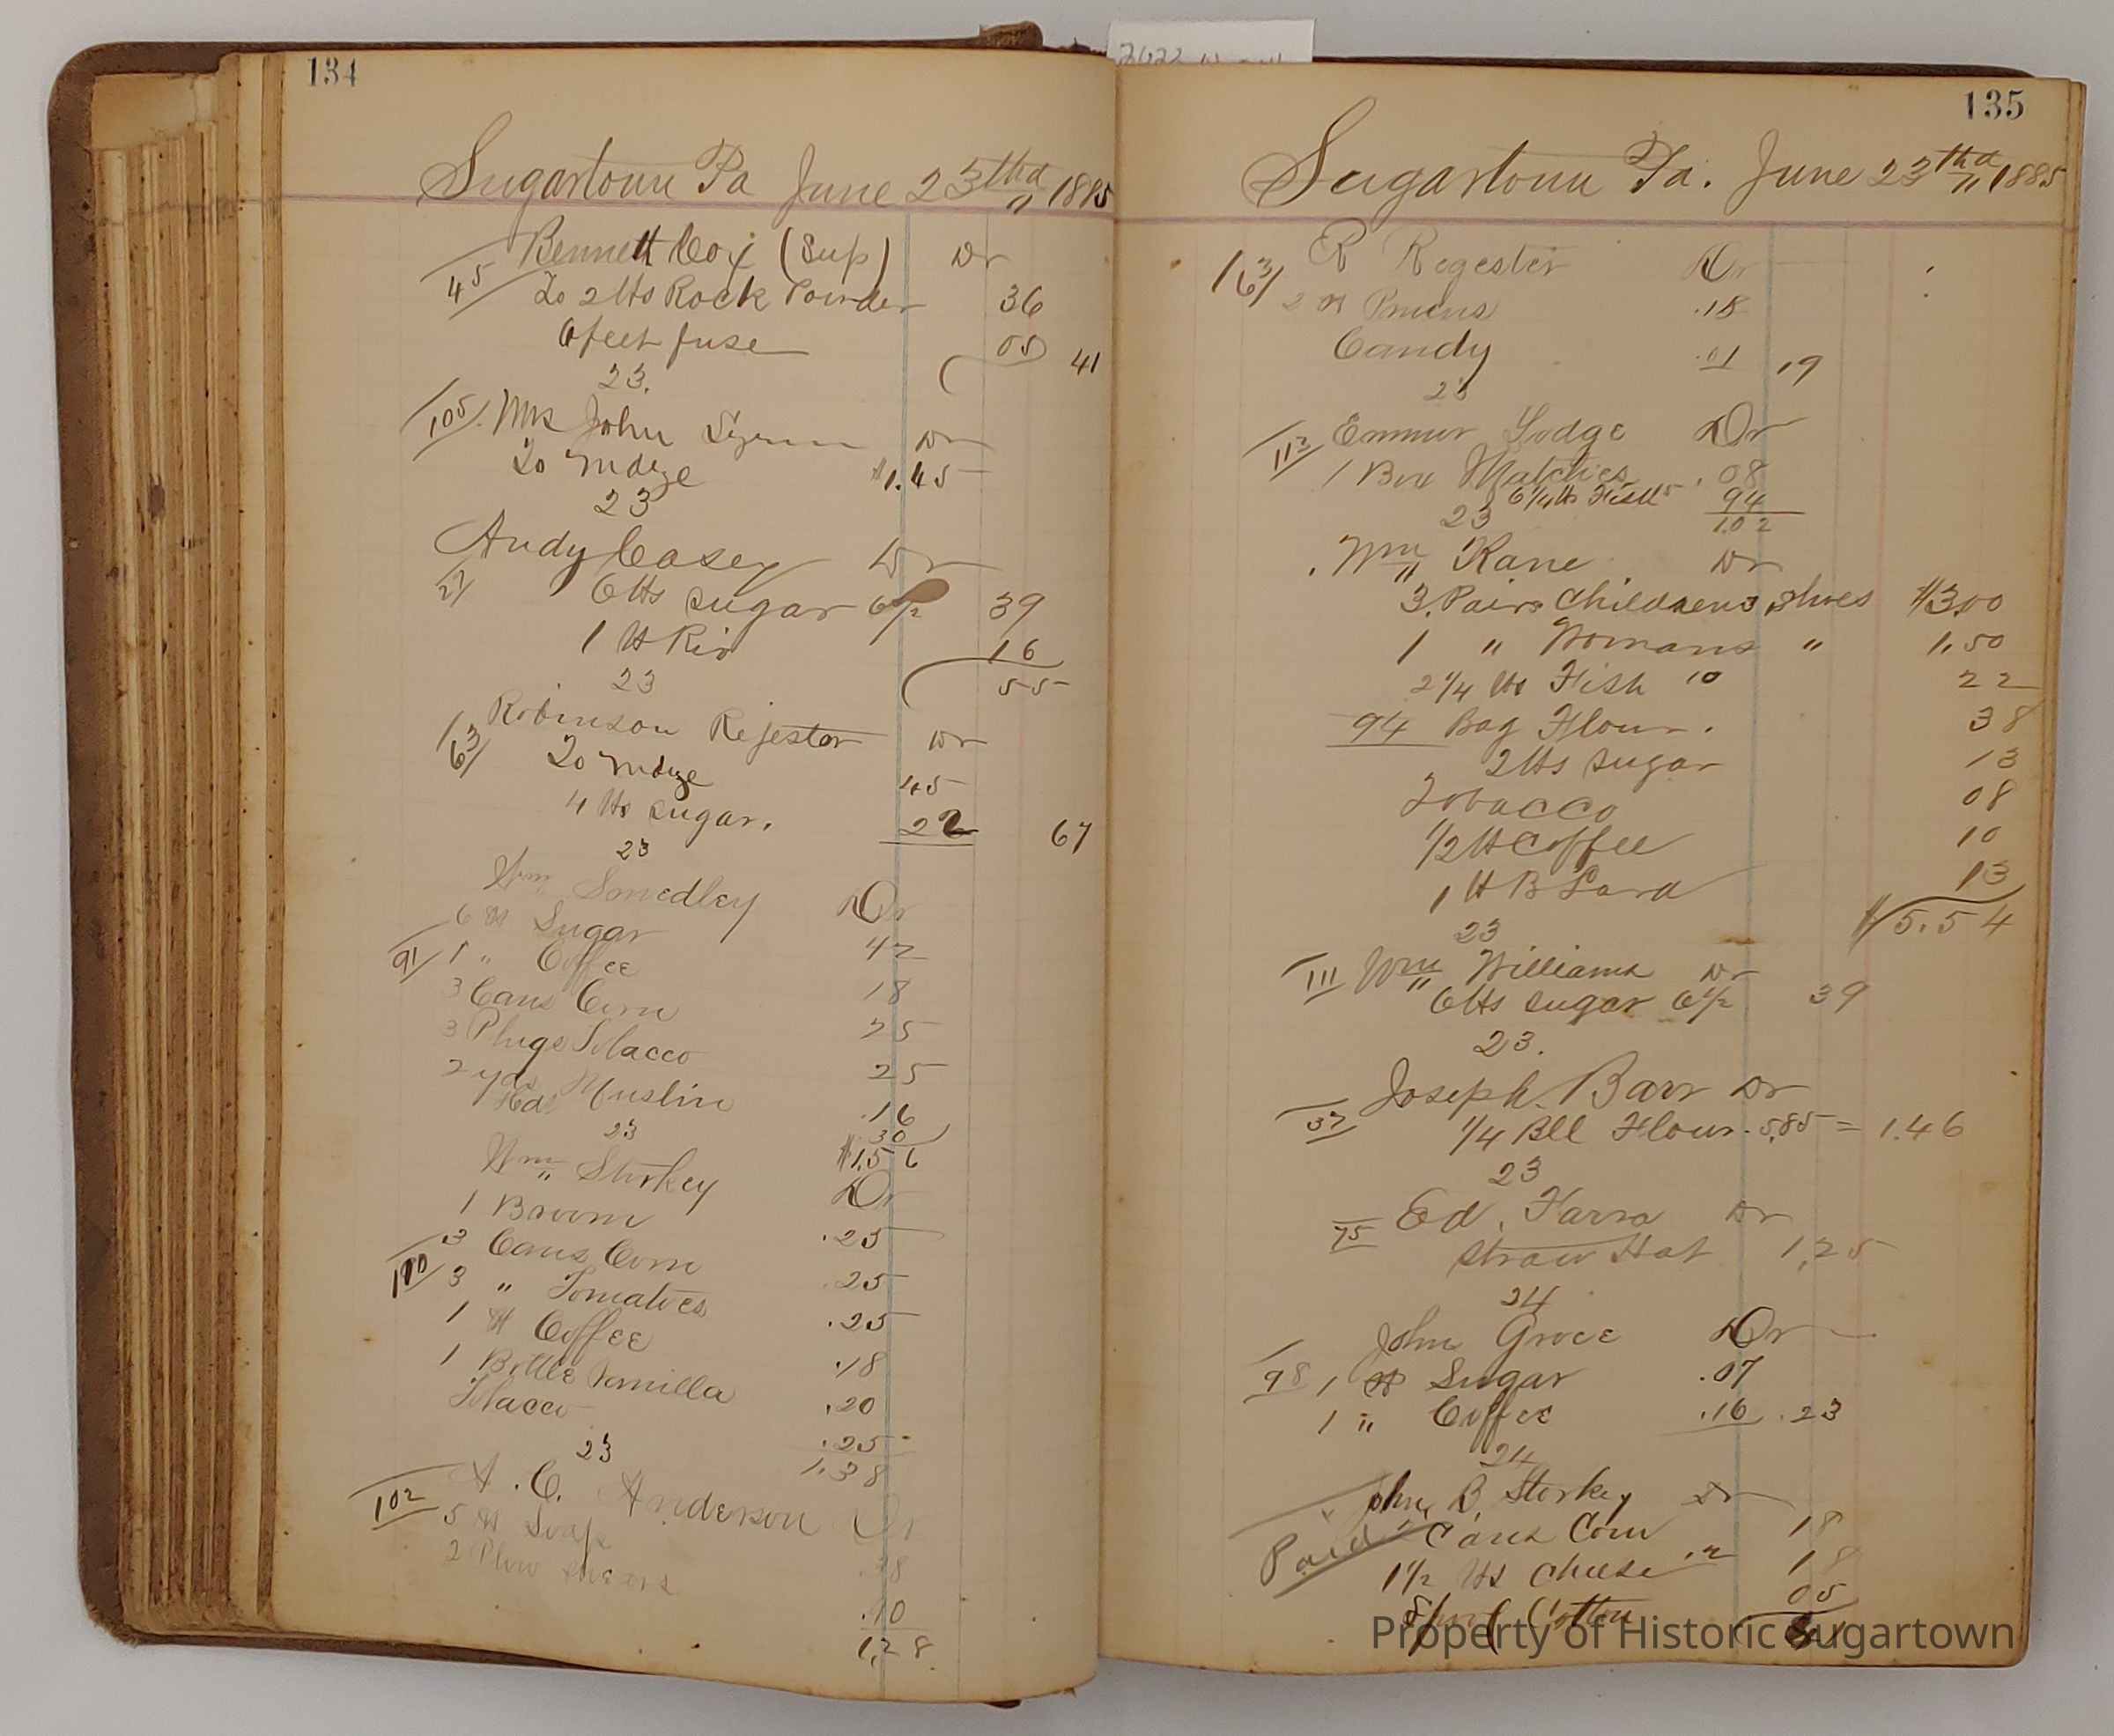 134
Sugartown Pa June 23thd 1885
Bennett Coy (Sup) Dr
45 To 2 lbs Rock Powder 36
6 feet fuse 05 41
23.
105. Mrs John Dr
To Mdze $1.45
23
Andy Casey Dr
27 6 lbs sugar 6 1/2 39
1 lb Rio 16
23 55
Robinson Rejester Dr
163 To Mdze 45
4 lbs sugar. 22 67
23
Wm Smedley Dr
6 lb Sugar 42
91 1 " Coffee 18
3 Cans Corn 25
3 Plugs Tobacco 25
2 yds Muslin .16
30
23 $1.56
Wm Storkey Dr
1 Broom .25
3 Cans Corn .25
100 3 " Tomatoes .25
1 lb Coffee .18
1 Bottle Vanilla .20
Tobacco .25
23 1.38
102 A. C. Anderson Dr
5 lb Soap 38
2 Plow shears .90
1,28.
135
Sugartown Pa. June 23thd 1885
163 R Regester Dr
2 lb Pruens .18
Candy .01 19
23
112 Emmor Lodge Dr
1 Box Matches .08
6 1/4 lbs Fish 15 94
23 1.02
Wm Kane Dr
3 Pairs Childrens Shoes $3.00
1 " Womans " 1,50
2 1/4 lbs Fish 10 22
94 Bag Flour. 38
2 lbs sugar 13
Tobacco 08
1/2 lb Coffee 10
1 lb B Lard 13
23 $5.54
111 Wm Williams Dr
6 lbs sugar 6 1/2 39
23.
Joseph Barr Dr
37 1/4 Bll Flour. 5,85 = 1.46
23
75 Ed. Farra Dr
Straw Hat 1,25
24
John Groce Dr
98 1 lb Sugar .07
1 " Coffee .16 .23
24
John B Storkey Dr
Paid Cans Corn 18
1 1/2 lbs Cheese 12 18
Spool Cotton 05
Property of Historic Sugartown